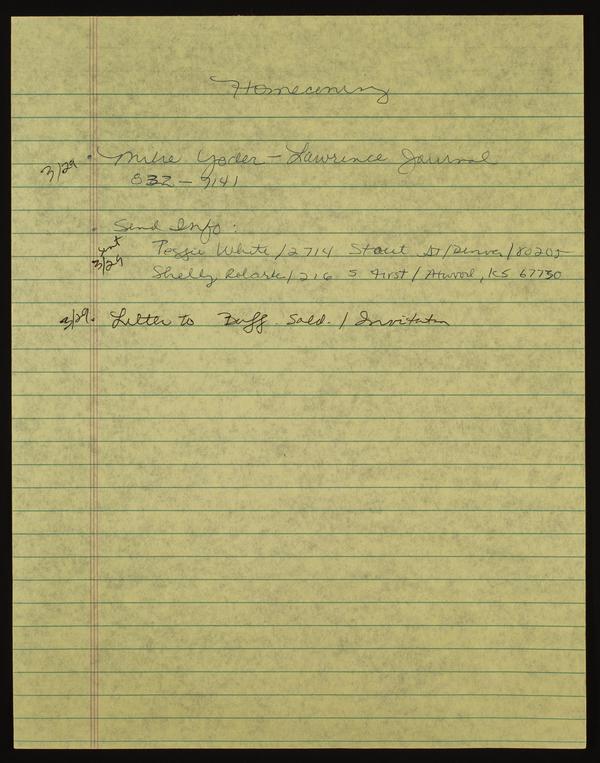 Homecoming
3/29 • Mike Yoder - Lawrence Journal
832-7141
• Send Info:
sent 3/29
Peggie White/2714 Stout St/Denver/80205
Shelly /216 S. First/Atwood, KS 67730
3/29 • Letter to Buff. Sold. / Invitation